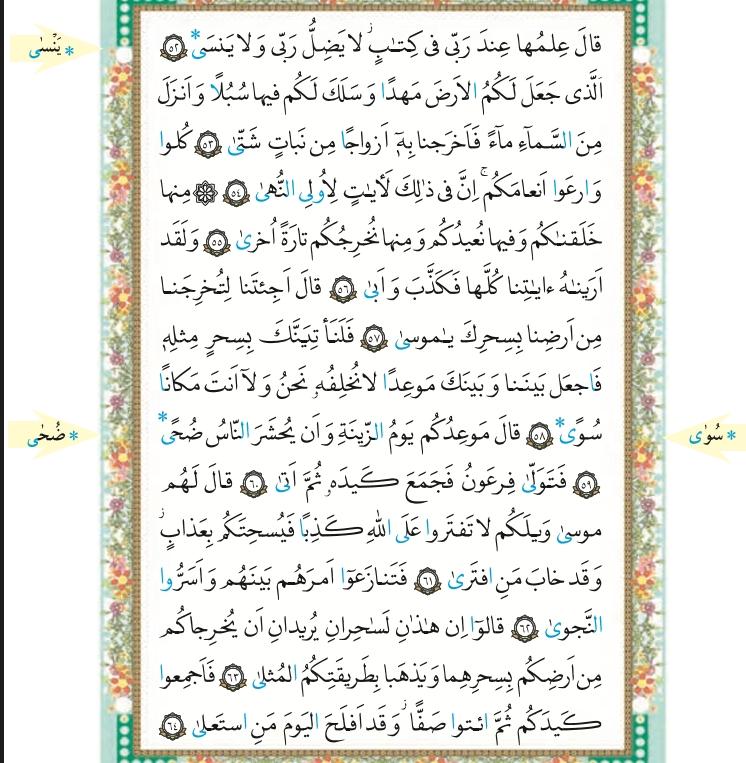 قالَ عِلمُها عِندَ رَبّى فى كِتـٰبٍ ۖ لا يَضِلُّ رَبّى وَ لا يَنسَى* ﴿٥٢﴾
* يَنْسىٰ
اَلَّذى جَعَلَ لَكُمُ الاَرضَ مَهدًا وَ سَلَكَ لَكُم فيها سُبُلًا وَ اَنزَلَ
مِنَ السَّمآءِ مآءً فَاَخرَجنا بِهِۤ اَزواجًا مِن نَباتٍ شَتّىٰ ﴿٥٣﴾ كُلوا
وَ ارعَوا اَنعامَكُم ۚ اِنَّ فى ذٰلِكَ لَأيـٰتٍ لِأُولِى النُّهىٰ ﴿٥٤﴾ ۞ مِنها
خَلَقنـٰكُم وَ فيها نُعيدُكُم وَ مِنها نُخرِجُكُم تارَةً اُخرىٰ ﴿٥٥﴾ وَ لَقَد
اَرَينـٰهُ ءايـٰتِنا كُلَّها فَكَذَّبَ وَ اَبىٰ ﴿٥٦﴾ قالَ اَجِئتَنا لِتُخرِجَنا
مِن اَرضِنا بِسِحرِكَ يـٰموسىٰ ﴿٥٧﴾ فَلَنَأتِيَنَّكَ بِسِحرٍ مِثلِهٖ
فَاجعَل بَينَنا وَ بَينَكَ مَوعِدًا لا نُخلِفُهٗ نَحنُ وَ لاۤ اَنتَ مَكانًا
* سُوىٰ
سُوًى* ﴿٥٨﴾ قالَ مَوعِدُكُم يَومُ الزّينَةِ وَ اَن يُحشَرَ النّاسُ ضُحًى*
* ضُحىٰ
﴿٥٩﴾ فَتَوَلّىٰ فِرعَونُ فَجَمَعَ كَيدَهٗ ثُمَّ اَتىٰ ﴿٦٠﴾ قالَ لَهُم
موسىٰ وَيلَكُم لا تَفتَروا عَلَى اللّٰهِ كَذِبًا فَيُسحِتَكُم بِعَذابٍ ۖ
وَ قَد خابَ مَنِ افتَرىٰ ﴿٦١﴾ فَتَنازَعوۤا اَمرَهُم بَينَهُم وَ اَسَرُّوا
النَّجوىٰ ﴿٦٢﴾ قالوۤا اِن هـٰذٰنِ لَسـٰحِرٰنِ يُريدانِ اَن يُخرِجاكُم
مِن اَرضِكُم بِسِحرِهِما وَ يَذهَبا بِطَريقَتِكُمُ المُثلىٰ ﴿٦٣﴾ فَاَجمِعوا
كَيدَكُم ثُمَّ ائتوا صَفًّا ۚ وَ قَد اَفلَحَ اليَومَ مَنِ استَعلىٰ ﴿٦٤﴾